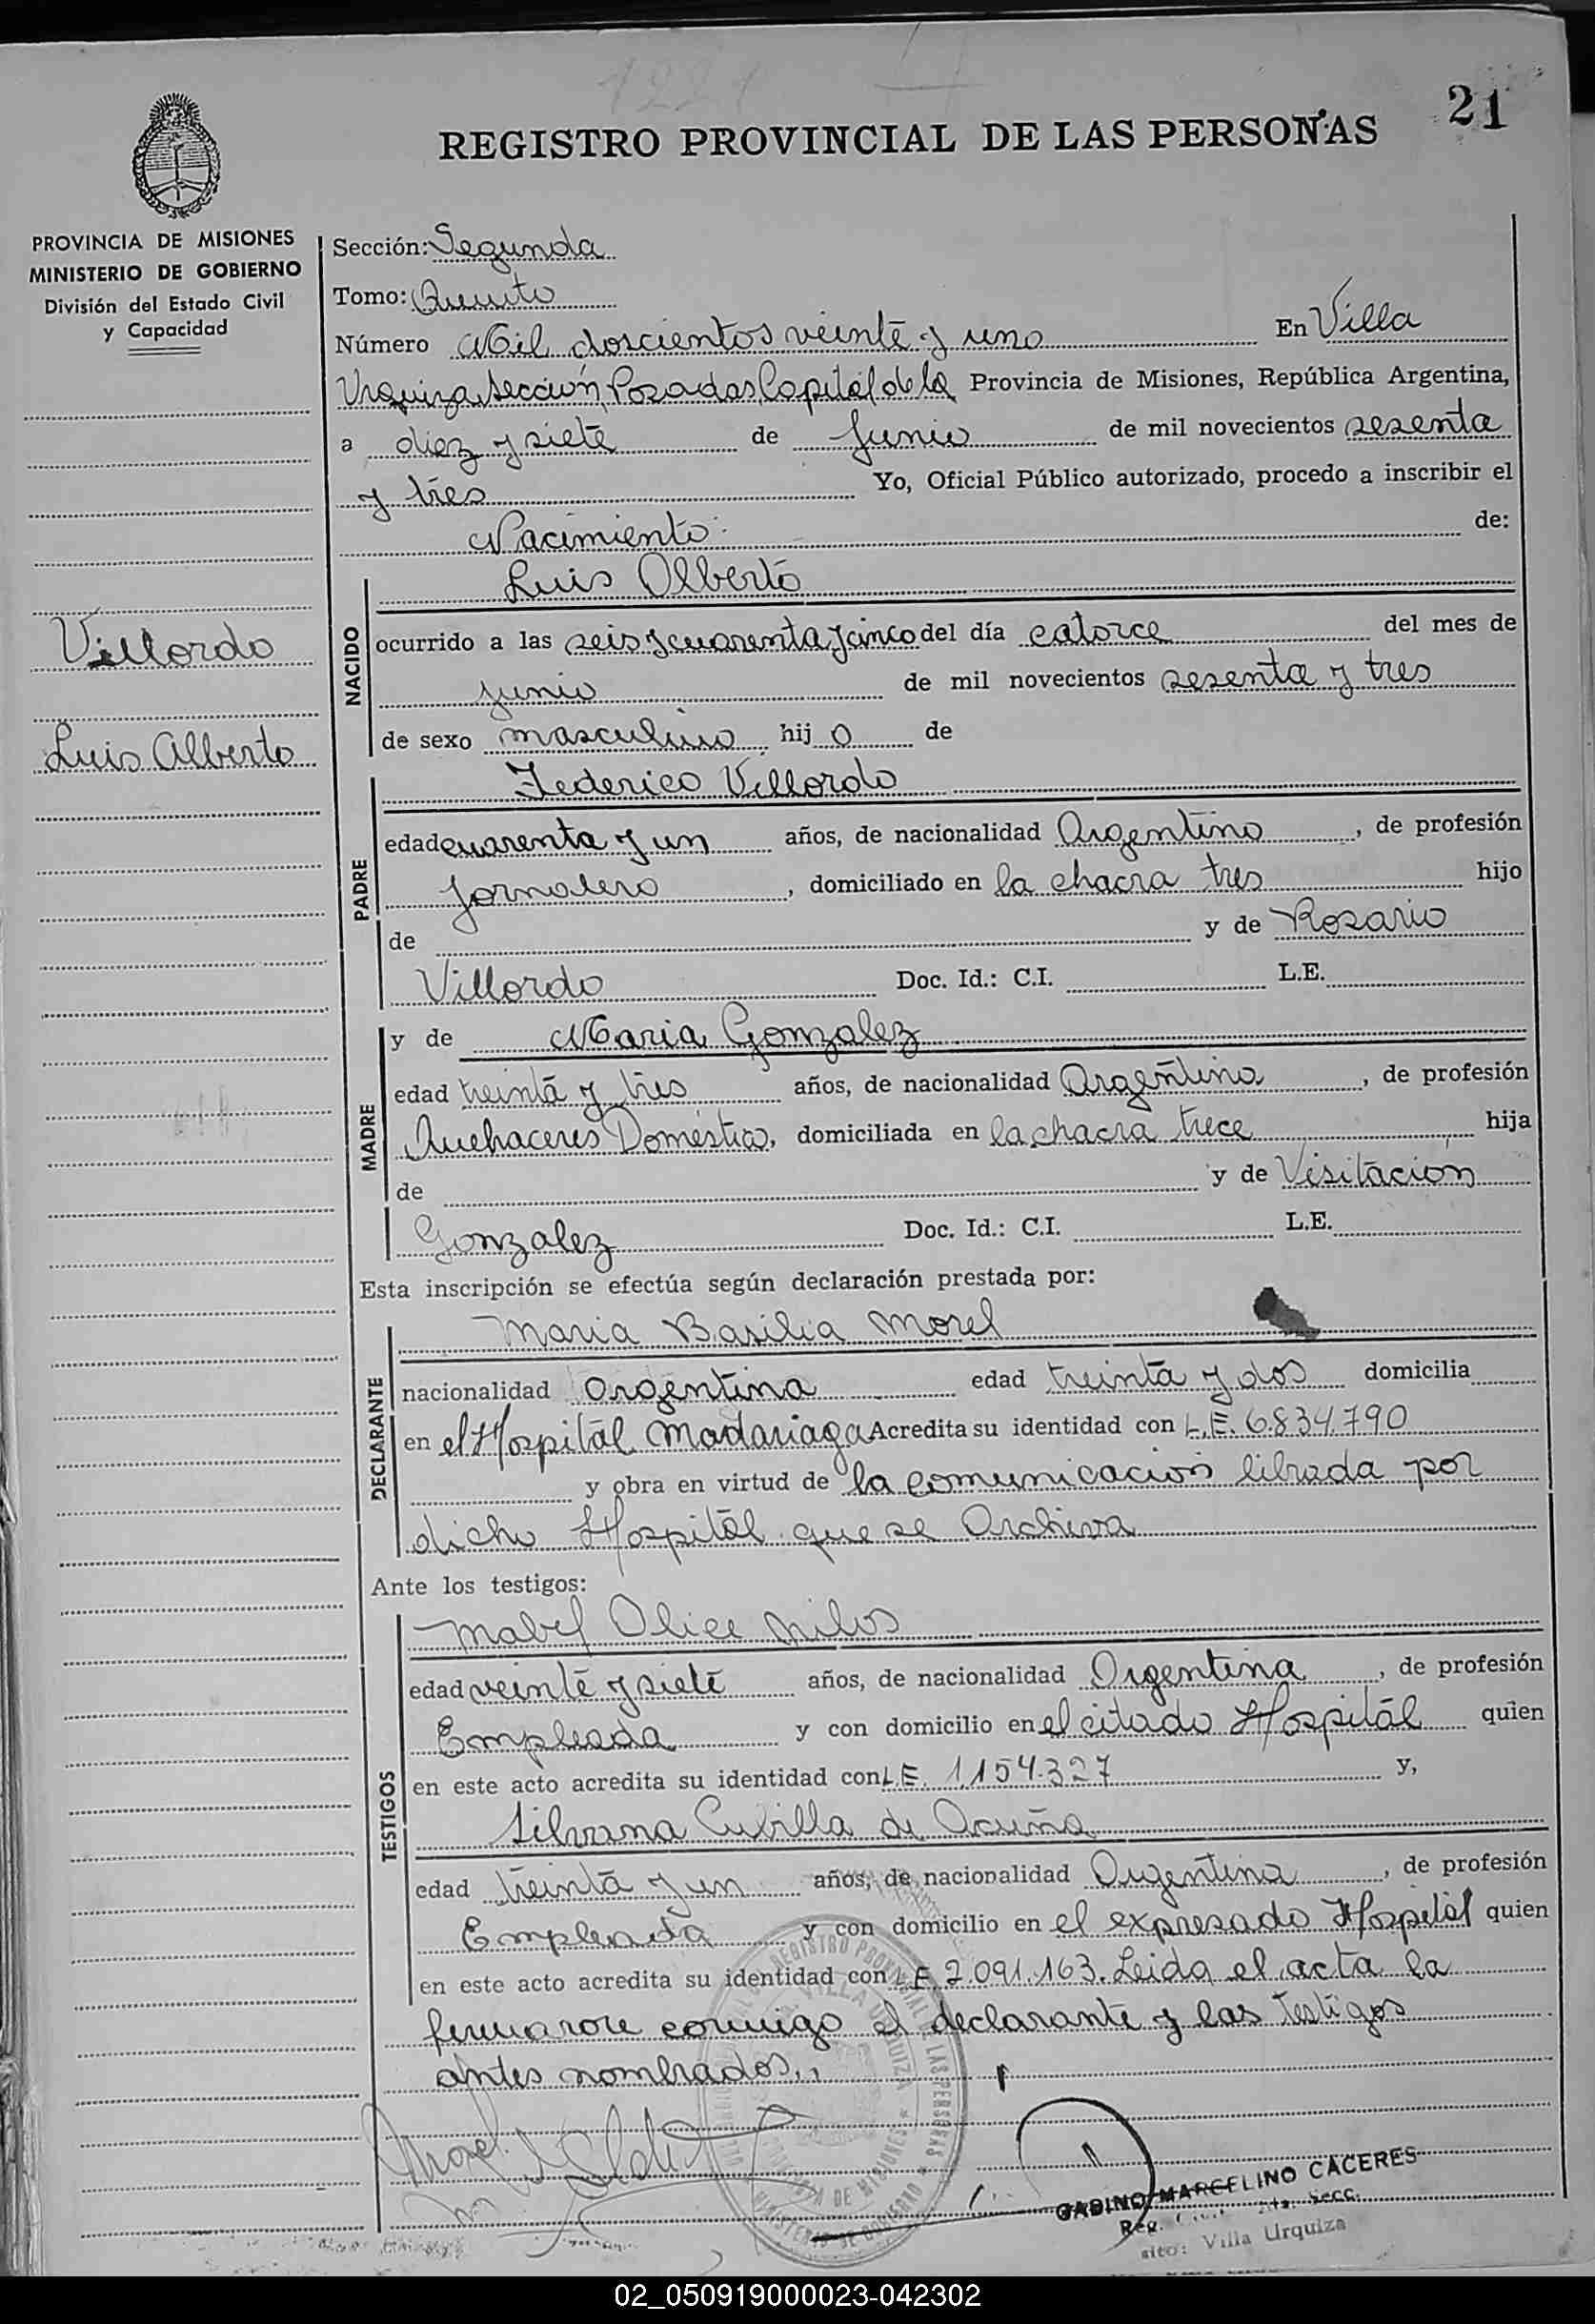 21
REGISTRO PROVINCIAL DE LAS PERSONAS
PROVINCIA DE MISIONES
MINISTERIO DE GOBIERNO
División del Estado Civil
y Capacidad
Villordo
Luis Alberto
Sección: Segunda
Tomo: Quinto
Número Mil doscientos veinte y uno En Villa
Urquiza, sección Posadas, Capital de la Provincia de Misiones, República Argentina,
a diez y siete de Junio de mil novecientos sesenta
y tres Yo, Oficial Público autorizado, procedo a inscribir el
Nacimiento de:
NACIDO
Luis Alberto
ocurrido a las seis y cuarenta y cinco del día catorce del mes de
junio de mil novecientos sesenta y tres
de sexo masculino hij o de
PADRE
Federico Villordo
edad cuarenta y un años, de nacionalidad Argentino, de profesión
Jornalero, domiciliado en la chacra tres hijo
de y de Rosario
Villordo Doc. Id.: C.I. L.E.
MADRE
y de Maria Gonzalez
edad treinta y tres años, de nacionalidad Argentina, de profesión
Quehaceres Domésticos, domiciliada en la chacra trece hija
de y de Visitación
Gonzalez Doc. Id.: C.I. L.E.
Esta inscripción se efectúa según declaración prestada por:
DECLARANTE
Maria Basilia Morel
nacionalidad Argentina edad treinta y dos domicilia
en el Hospital Madariaga Acredita su identidad con L.E. 6.834.790
y obra en virtud de la comunicación librada por
dicho Hospital que se Archiva
Ante los testigos:
TESTIGOS
Mabel Alice
edad veinte y siete años, de nacionalidad Argentina, de profesión
Empleada y con domicilio en el citado Hospital quien
en este acto acredita su identidad con L.E. 1.154.327 y,
Silvana Cubilla de Acuña
edad treinta y un años, de nacionalidad Argentina, de profesión
Empleada y con domicilio en el expresado Hospital quien
en este acto acredita su identidad con L.E. 2.091.163. Leida el acta la
firmaron conmigo el declarante y las testigos
antes nombrados.,
Morel
GABINO MARCELINO CACERES
Reg. Civil 2da. Secc.
sito: Villa Urquiza
02_050919000023-042302